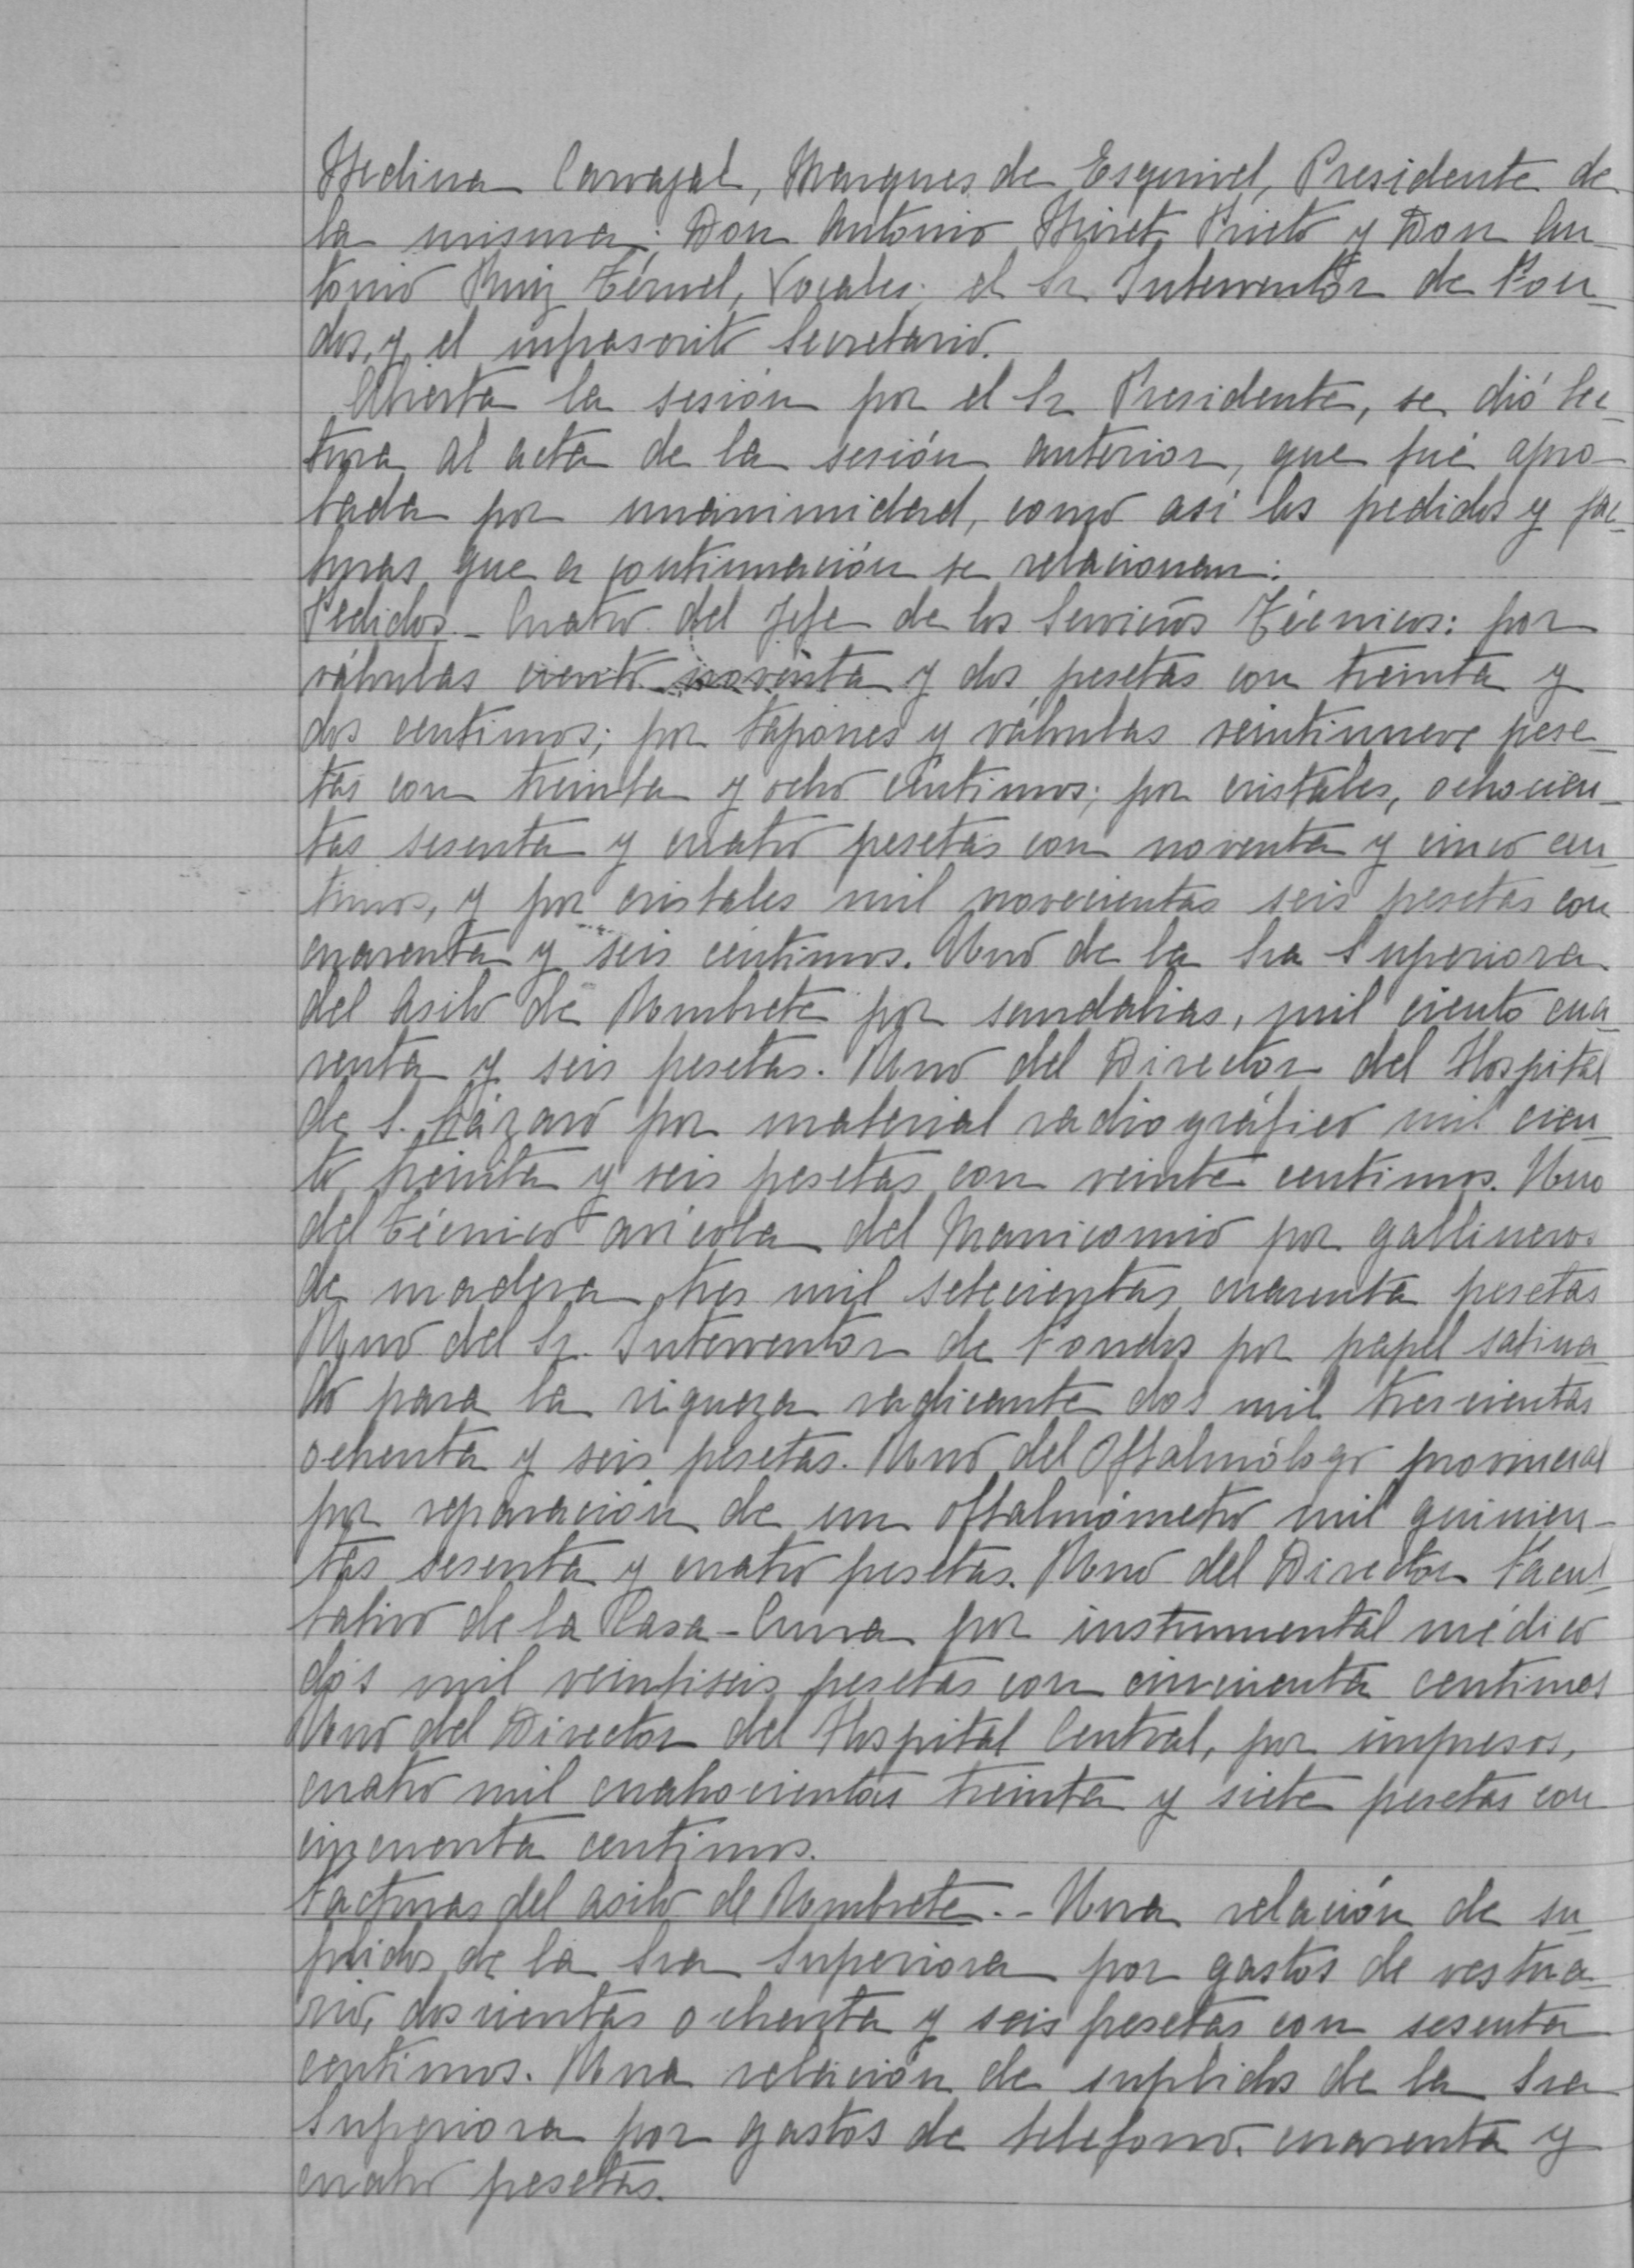 Medina Carvajal, Marques de Esquivel, Presidente de
la misma; Don Antonio Miret Prieto y Don An-
tonio Ruiz Téruel, Vocales; el Sr Interventor de Fon-
dos, y el infrascrito Secretario.
Abierta la sesión por el Sr Presidente, se dió lec-
tura al acta de la sesión anterior, que fué apro-
bada por unanimidad, como asi los pedidos y fac-
turas que a continuación se relacionan:
Pedidos - Cuatro del Jefe de los Servicios Técnicos: por
válvulas ciento noventa y dos pesetas con treinta y
dos centimos; por tapones y válvulas veintinueve pese-
tas con treinta y ocho céntimos; por cristales, ochocien-
tas sesenta y cuatro pesetas con noventa y cinco cen-
timos, y por cristales mil novecientas seis pesetas con
cuarenta y seis céntimos. Uno de la Sra Superiora
del Asilo de Umbrete por sandalias, mil ciento cua-
renta y seis pesetas. Uno del Director del Hospital
de S. Lázaro por material radiográfico mil cien-
to treinta y seis pesetas con veinte centimos. Uno
del Técnico avícola del Manicomio por gallineros
de madera tres mil setecientas cuarenta pesetas
Uno del Sr. Interventor de Fondos por papel satina-
do para la riqueza radicante dos mil trescientas
ochenta y seis pesetas. Uno del Oftalmólogo provincial
por reparación de un oftalmómetro mil quinien-
tas sesenta y cuatro pesetas. Uno del Director Facul-
tativo de la Casa-Cuna por instrumental médico
dos mil veintiseis pesetas con cincuenta centimos
Uno del Director del Hospital Central, por impresos,
cuatro mil cuatrocientas treinta y siete pesetas con
cincuenta centimos.
Facturas del asilo de Umbrete. - Una relación de su-
plidos de la Sra Superiora por gastos de vestua-
rio, doscientas ochenta y seis pesetas con sesenta
centimos. Una relación de suplidos de la Sra
Superiora por gastos de telefono, cuarenta y
cuatro pesetas.